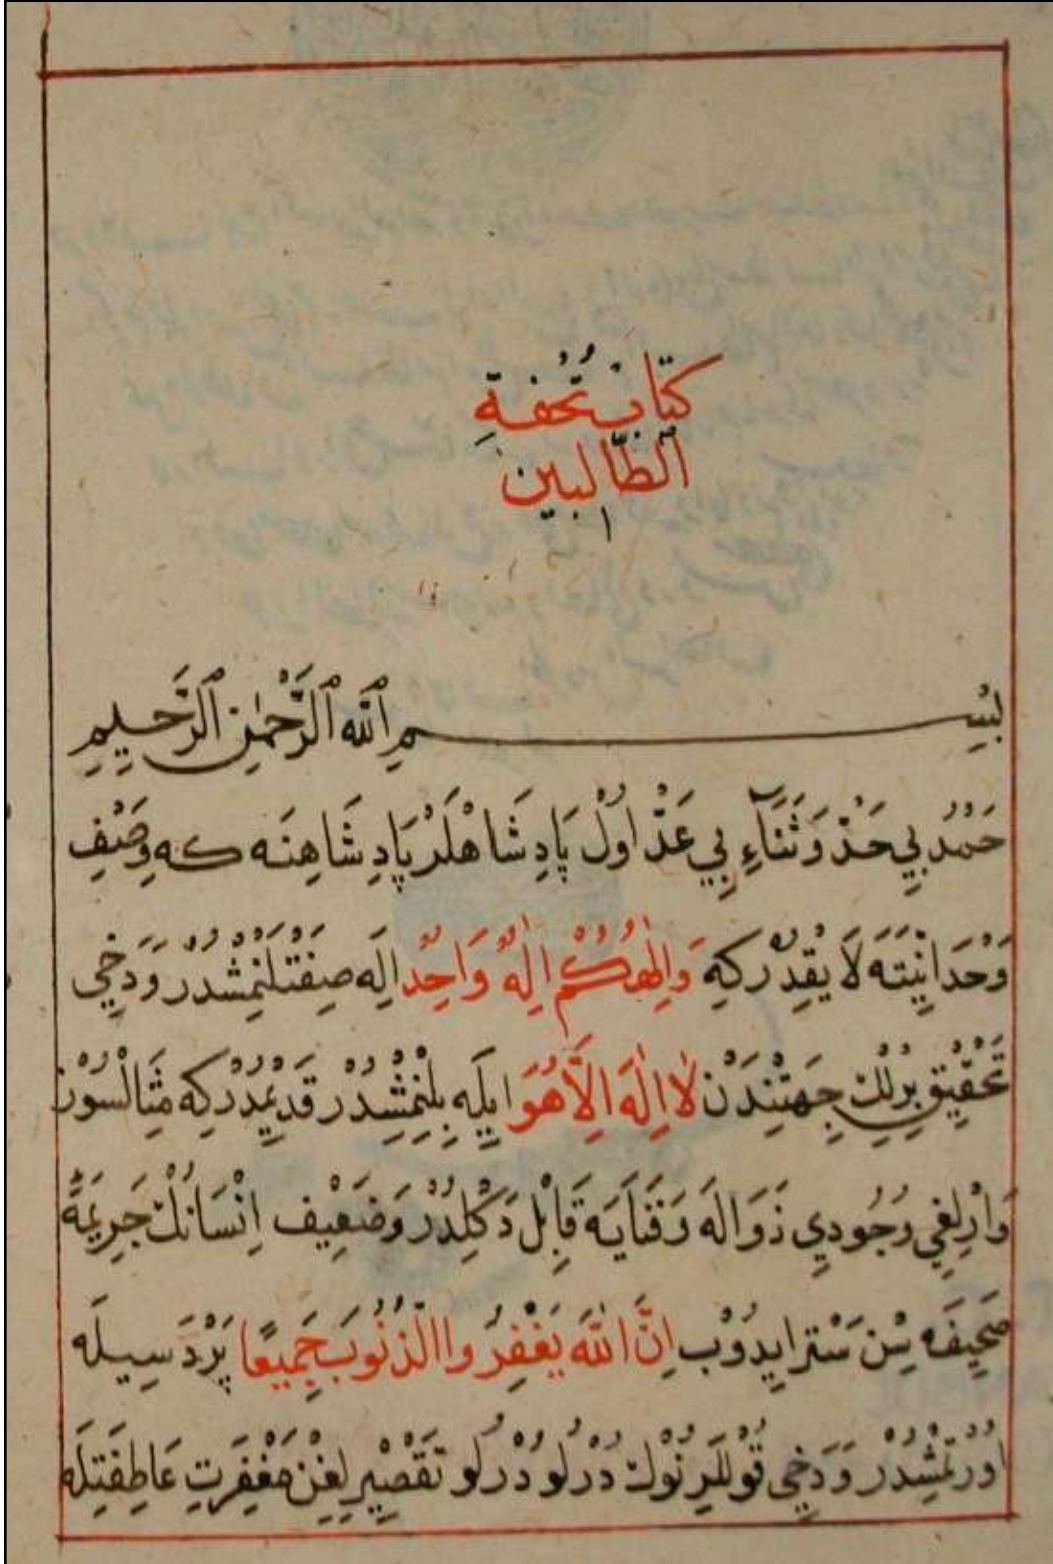 كتَابْ تُحْفَةِ
الطَّالبين
بِسْــــــمِ ٱللّٰهِ ٱلرَّحْمٰنِ ٱلرَّحِيمِ
حَمْدُ بِي حَدْ وَثَنَآءِ بِي عَدّْ اوُلْ پَادِشَاهْلَرْ پَادِشَاهِنَه كه وَصْفِ
وَحْدَانِيَّتَه لَا يُقِدْرْ كِه وَاِلٰهُكُمْ اِلٰهٌ وَاحِدٌ اِلَه صِفَتْلَنْمِشْدُرْ وَدَخِي
تَحْقِيقِ بِرْلِكْ جِهَتِنْدَنْ لَا اِلٰهَ اِلَّا هُوَ ايِلَه بِلِنْمِشْدُرْ قَدِيمْدُرْ كِه مِثَالْسُوزْ
وَارْلِغِي وُجُودِي زَوَالَه وَفَنَايَه قَابِلْ دَكْلِدُرْ وَضَعِيفْ اِنْسَانِكْ جَرِيمَۀ
صَحِيفَه سِنْ سَتْر ايِدُوبْ اِنَّ اللّٰهَ يَغْفِرُ واالذُّنُوبَ جَمِيعًا پَرْدَ سِيلَه
اوُرْتْمِشْدُرْ وَدَخِي قُوللَرِنُوكْ دُرْلُو دُرْلُو تَقْصِيرلِغِنْ مَغْفِرَتِ عَاطِفَتِلَه